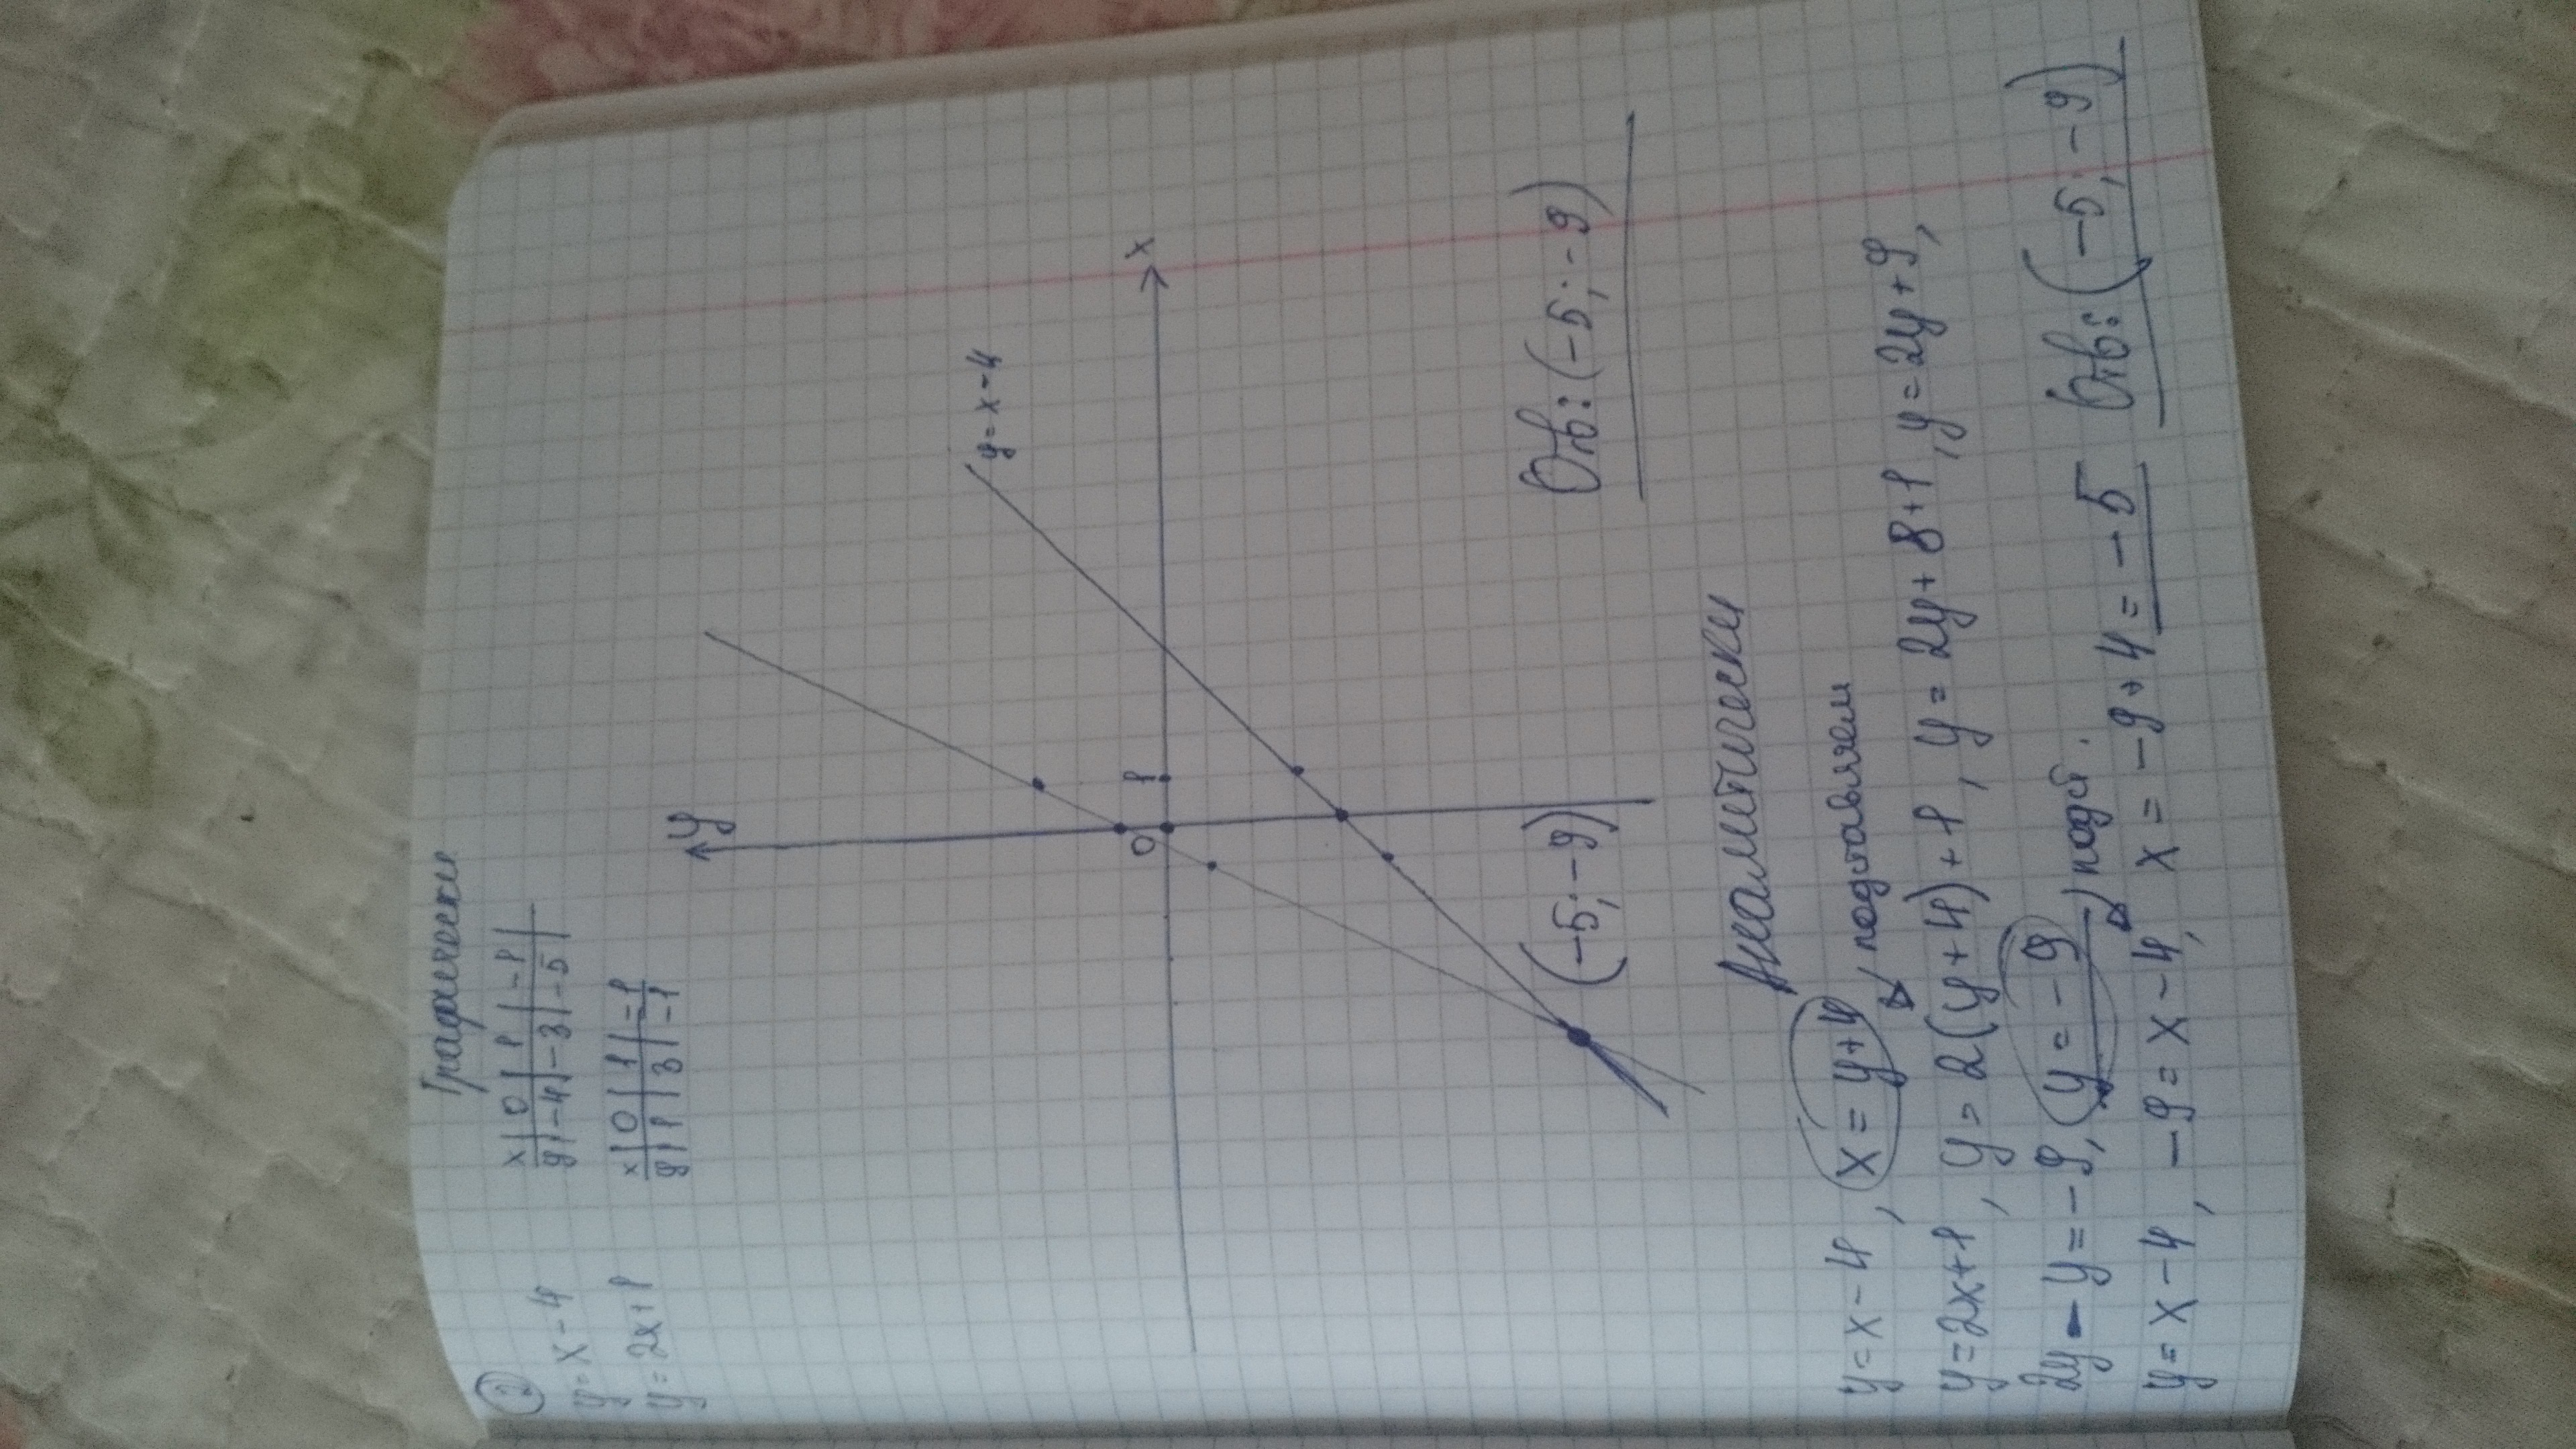 Графически
2
y = x - 4
x | 0 | 1 | -1 |
y | -4 | -3 | -5 |
y = 2x + 1
x | 0 | 1 | -1
y | 1 | 3 | -1
y
y = x - 4
0 1
x
(-5; -9)
Отв: (-5; -9)
Аналитически
y = x - 4, x = y + 4 подставляем
y = 2x + 1, y = 2(y + 4) + 1, y = 2y + 8 + 1, y = 2y + 9,
2y - y = -9, y = -9 подст.
y = x - 4, -9 = x - 4, x = -9 + 4 = -5 Отв: (-5; -9)